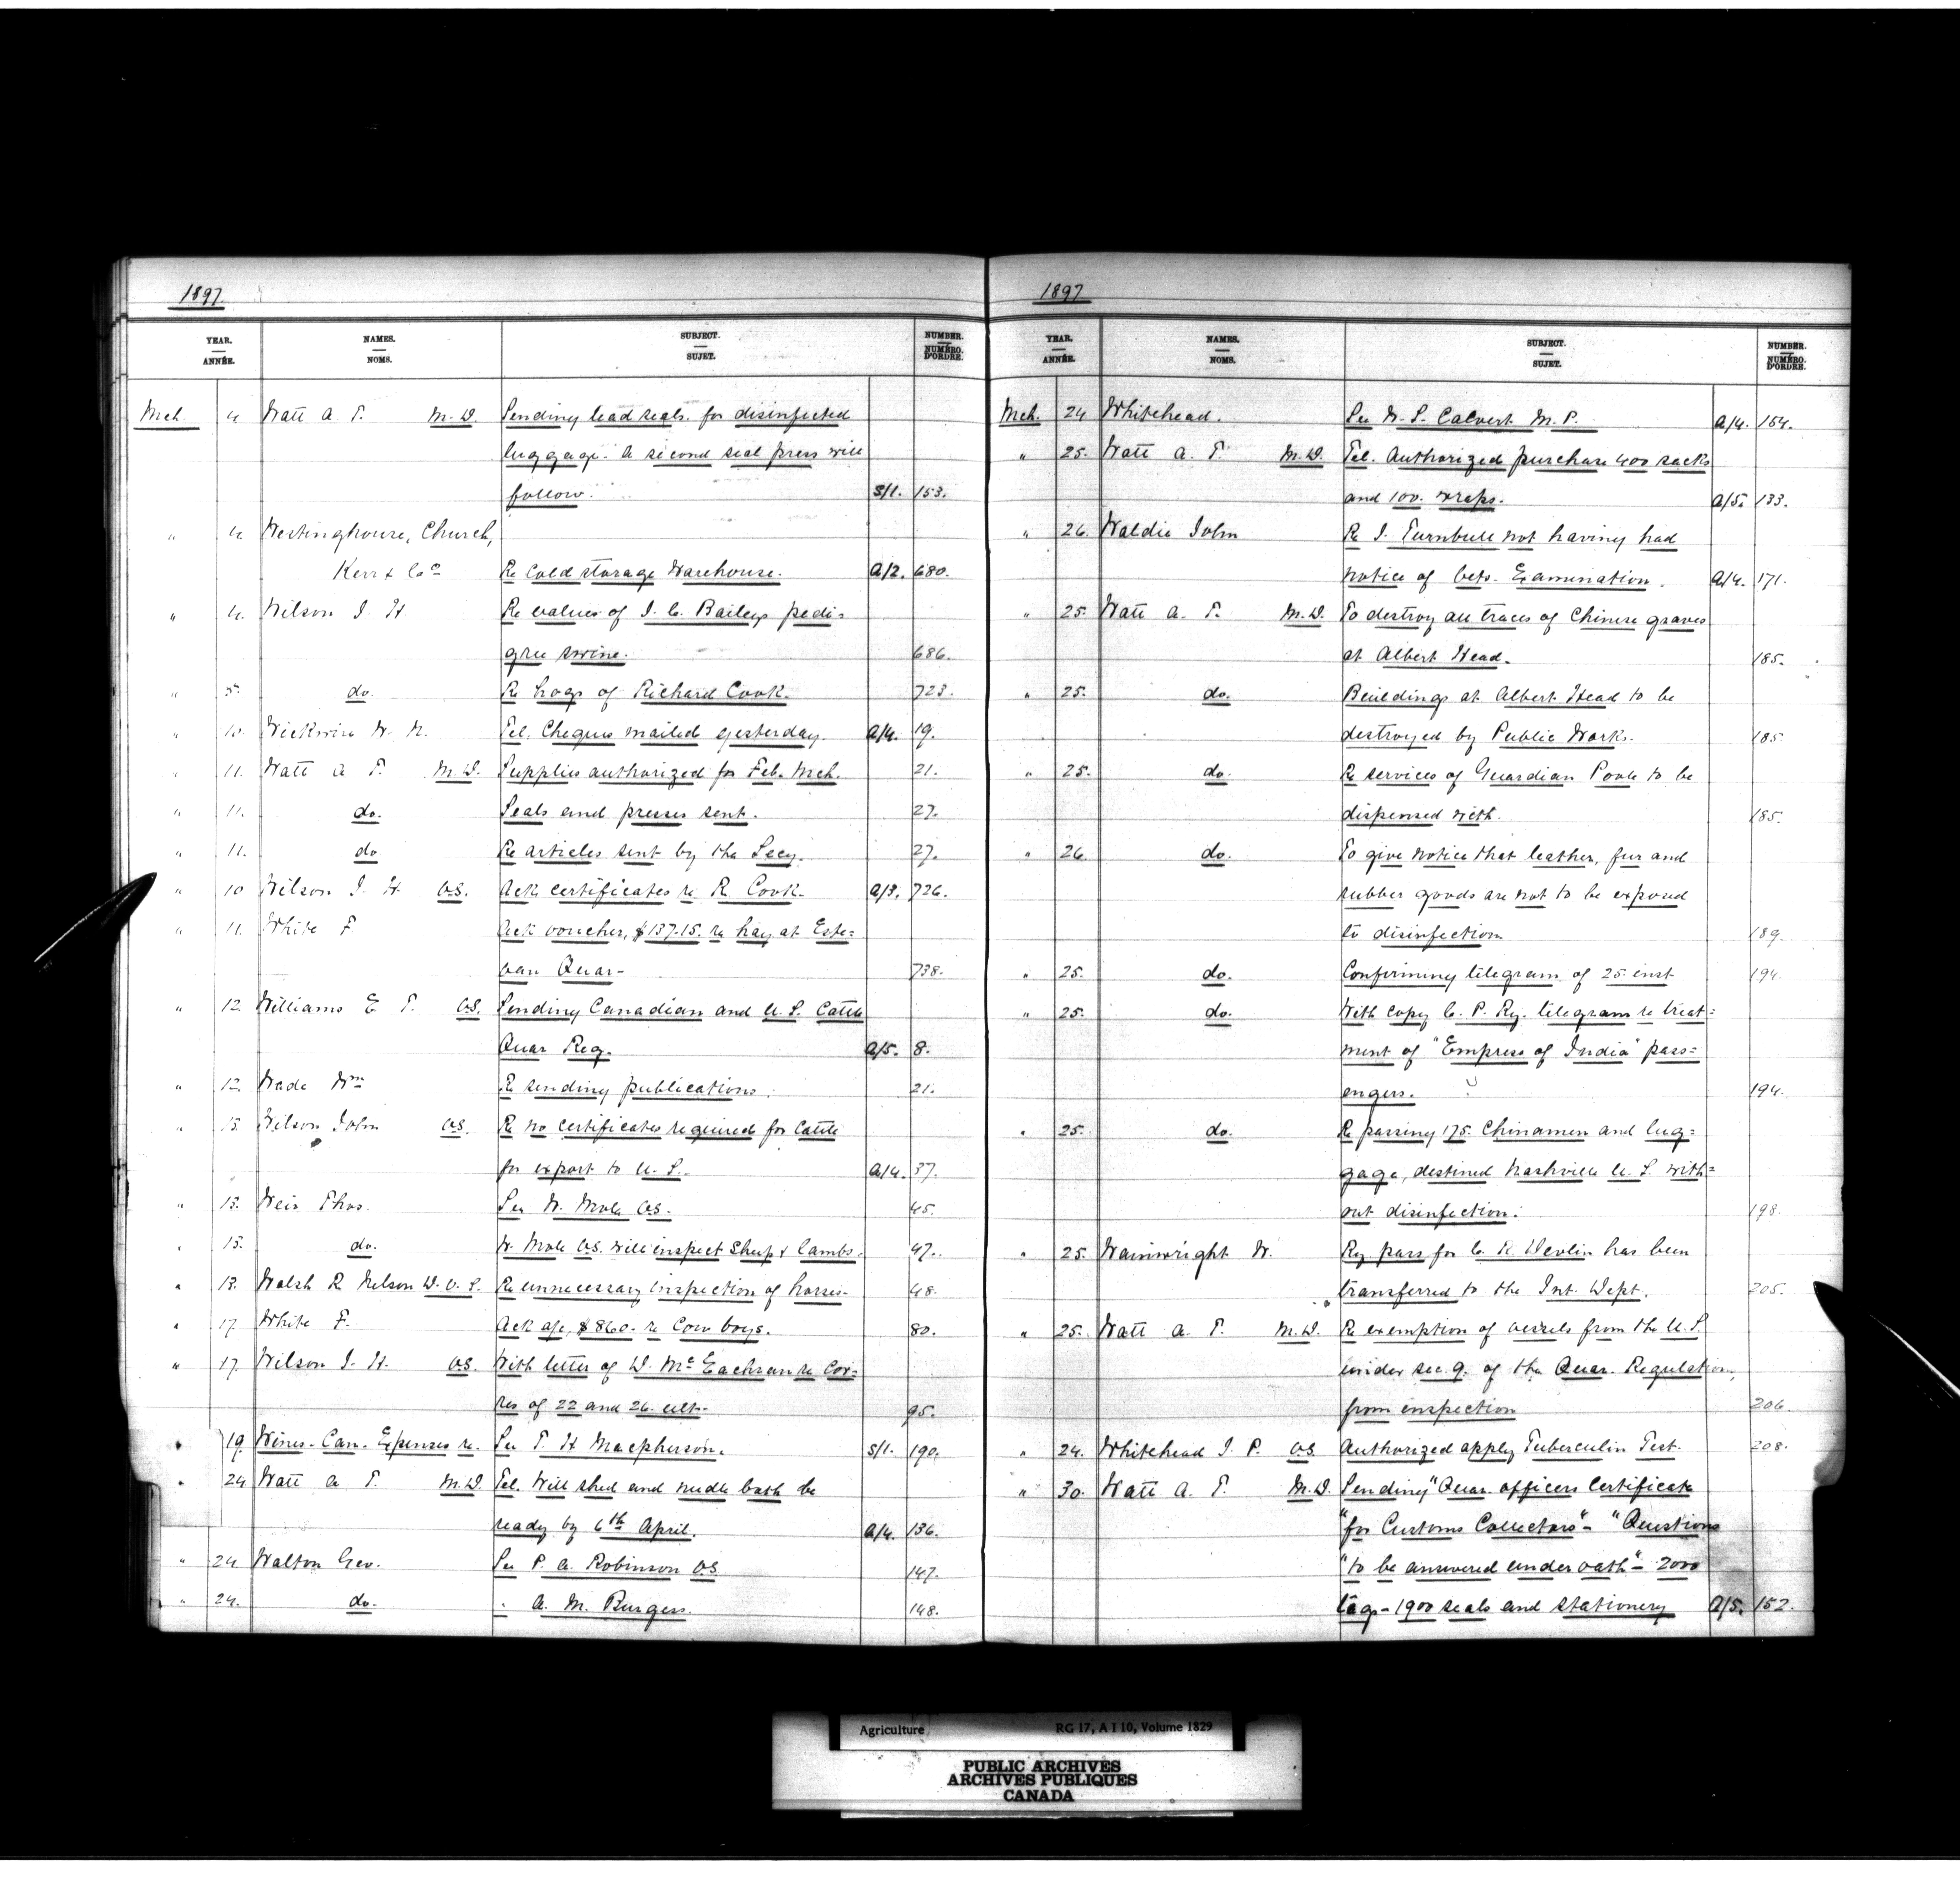 1897
YEAR. ANNÉE. NAMES. NOMS. SUBJECT. SUJET. NUMBER. NUMÉRO. D'ORDRE.
Mch. 4 Watt A. T. M.D. Sending lead seals for disinfected
luggage - A second seal press will
follow. S/1. 153.
" 4 Westinghouse, Church,
Kerr & Co Re Cold storage Warehouse. A/2. 680.
" 4. Wilson J. H Re values of J. C. Baileys pedi=
gree swine. 686.
" 5. do. Re hogs of Richard Cook. 723.
" 10. Wickwire W. N. Tel. Cheques mailed yesterday. A/4. 19.
" 11. Watt A T. M.D. Supplies authorized for Feb. Mch. 21.
" 11. do. Seals and presses sent. 27.
" 11. do Re articles sent by the Secy. 27.
" 10 Wilson J. H V.S. Ack certificates re R. Cook. A/3. 726.
" 11. White F. Ack voucher, $137.15. re hay at Este=
van Quar- 738.
" 12. Williams E. T. V.S. Sending Canadian and U. S. Cattle
Quar Reg. A/5. 8.
" 12. Wade Wm Re sending publications. 21.
" 13. Wilson John V.S. Re no certificates required for Cattle
for export to U. S. A/4. 37.
" 13. Weir Thos. See W. Mole V.S. 45.
" 13. do. W. Mole V.S. will inspect Sheep & lambs. 47.
" 13. Walsh R Nelson D. V. S. Re unnecessary inspection of horses. 48.
" 17. White F. Ack a/c, $860. re Cow boys. 80.
" 17. Wilson J. H. V.S. With letter of D. McEachran re Cor=
res of 22 and 26. ult. 95.
" 19. Wines. Can. Expenses re. See T. H Macpherson. S/1. 190.
" 24 Watt A T. M.D. Tel. Will shed and needle bath be
ready by 6th April. A/4. 136.
" 24. Walton Geo. See P. A. Robinson V.S. 147.
" 24. do. " A. M. Burgess. 148.
1897
YEAR. ANNÉE. NAMES. NOMS. SUBJECT. SUJET. NUMBER. NUMÉRO. D'ORDRE.
Mch. 24 Whitehead. See W. S. Calvert M. P. A/4. 154.
" 25. Watt A. T. M.D. Tel. Authorized purchase 400 sacks
and 100. wraps. A/5. 133.
" 26. Waldie John Re J. Turnbull not having had
notice of Vets. Examination. A/4. 171.
" 25. Watt A. T. M.D. To destroy all traces of Chinese graves
at Albert Head. 185.
" 25. do. Buildings at Albert Head to be
destroyed by Public Works. 185
" 25. do. Re services of Guardian Poole to be
dispensed with. 185.
" 26 do. To give notice that leather, fur and
rubber goods are not to be exposed
to disinfection 189.
" 25. do. Confirming telegram of 25 inst 194.
" 25. do. With copy C. P. Ry. telegram re treat=
ment of "Empress of India" pass=
engers. 194.
" 25. do. Re passing 175. Chinamen and lug=
gage, destined Nashville U. S. with=
out disinfection. 198.
" 25. Wainwright W. Ry pass for C. R. Devlin has been
transferred to the Int. Dept. 205.
" 25. Watt A. T. M.D. Re exemption of vessels from the U. S.
under sec. 9. of the Quar. Regulation,
from inspection 206.
" 24. Whitehead J. P. V.S. Authorized apply Tuberculin Test. 208.
" 30. Watt A. T. M.D. Sending "Quar. officers Certificate
"for Customs Collectors" - "Questions
"to be answered under oath" - 2000
tags - 1900 seals and stationery A/5. 152.
Agriculture RG 17, A I 10, Volume 1829
PUBLIC ARCHIVES
ARCHIVES PUBLIQUES
CANADA